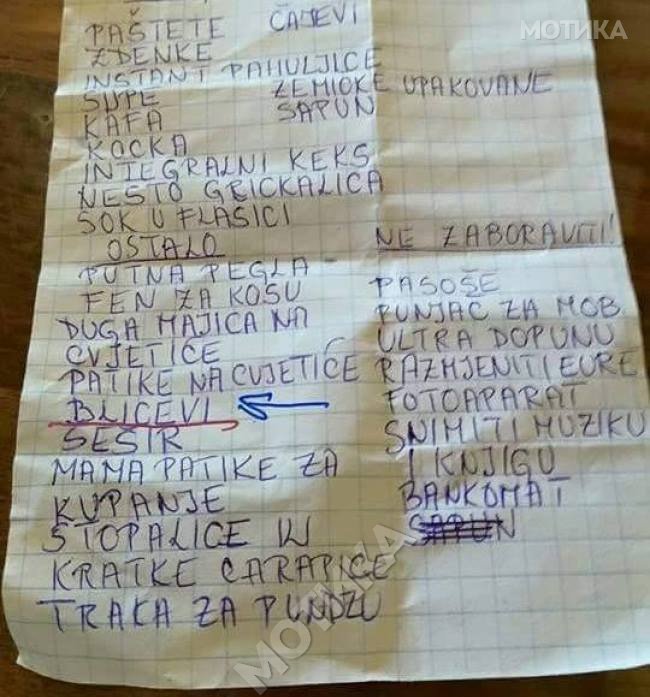 МОТИКА
PAŠTETE
ČAJEVI
ZDENKE
INSTANT PAHULJICE
SUPE
ZEMIČKE UPAKOVANE
KAFA
SAPUN
KOCKA
INTEGRALNI KEKS
NESTO GRICKALICA
SOK U FLASICI
OSTALO
PUTNA PEGLA
FEN ZA KOSU
DUGA MAJICA NA
CVJETIĆE
PATIKE NA CVJETIĆE
BLICEVI
SESIR
MAMA PATIKE ZA
KUPANJE
STOPALICE ILI
KRATKE CARAPICE
TRAKA ZA PUNDZU
NE ZABORAVITI!
PASOŠE
PUNJAC ZA MOB
ULTRA DOPUNU
RAZMJENITI EURE
FOTOAPARAT
SNIMITI MUZIKU
I KNJIGU
BANKOMAT
SAPUN
МОТИКА